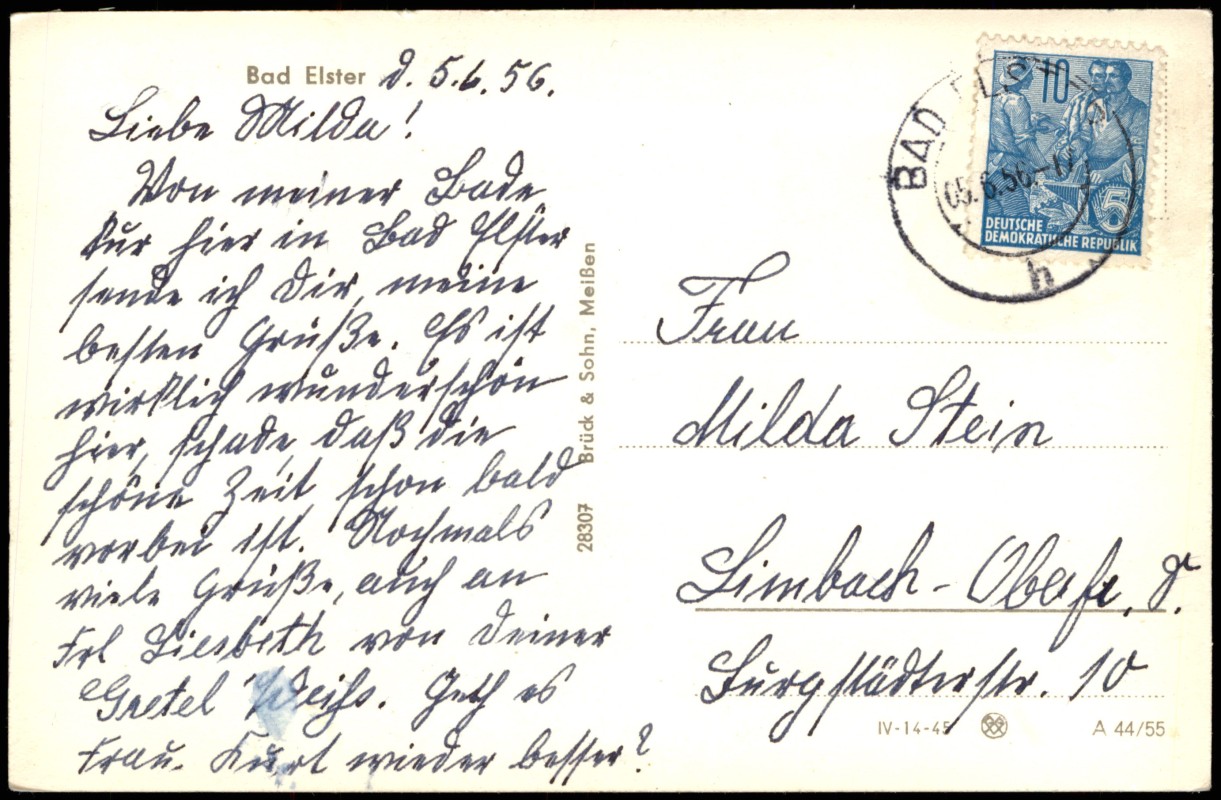 Bad Elster d. 5.6.56.
Liebe Milda!
Von meiner Bade
kur hier in Bad Elster
sende ich Dir, meine
besten Grüße. Es ist
wirklich wunderschön
hier, schade, daß die
schöne Zeit schon bald
vorbei ist. Nochmals
viele Grüße, auch an
Frl Liesbeth von Deiner
Gretel Weihs. Geth es
Frau. Kurt wieder besser?
28307 Brück & Sohn, Meißen
BAD ELSTER
05.6.56.-17
h
10
5
DEUTSCHE
DEMOKRATISCHE REPUBLIK
Frau
Milda Stein
Limbach-Oberfr.
Burgstädterstr. 10
IV-14-45
A 44/55